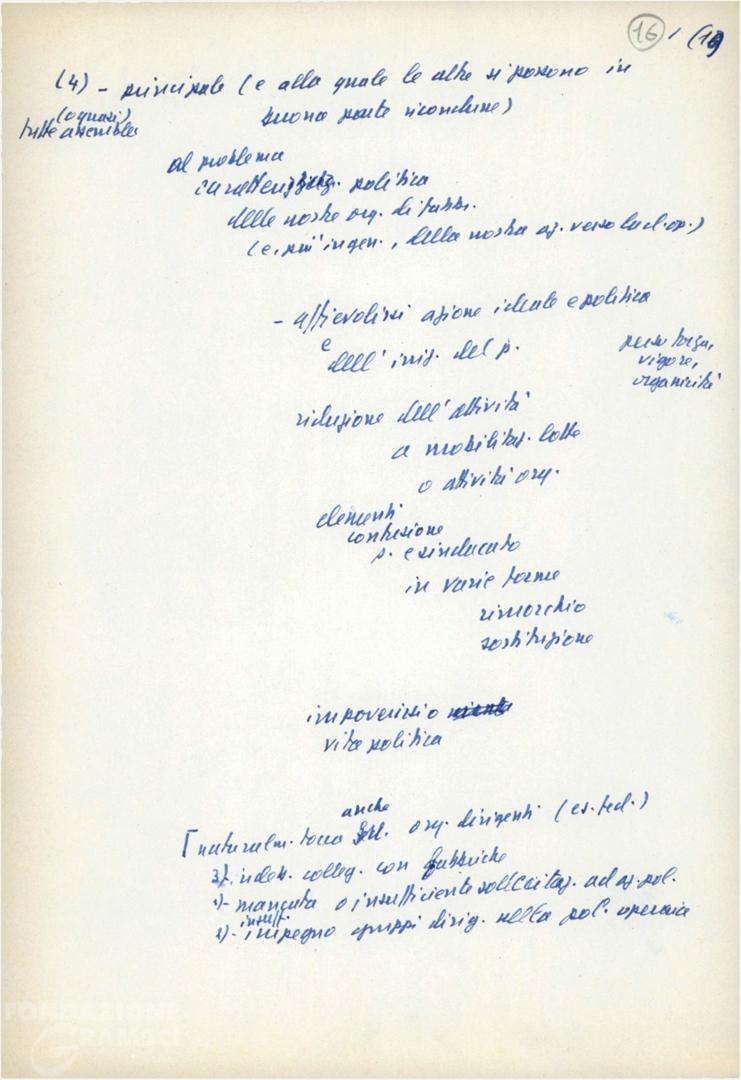 16 / (19)
(4) - principale (e alla quale le altre si possono in
buona parte ricondurre)
(o quasi)
tutte assemblee
al problema
caratterizzaz. politica
delle nostre org. di fabbr.
(e, più in gen., della nostra az. verso la cl. op.)
- affievolirsi azione ideale e politica
e
dell' iniz. del p.
perso forza,
vigore,
organicità
riduzione dell' attività
a mobilitaz. lotte
o attività org.
elementi
confusione
p. e sindacato
in varie forme
rimorchio
sostituzione
impoverisio
vita politica
anche
[naturalm. tocca org. dirigenti (es. fed.)
3)- indeb. colleg. con fabbriche
1)- mancata o insufficiente sollecitaz. ad az. pol.
insuff.
2)- impegno gruppi dirig. nella pol. operaia
FONDAZIONE
GRAMSCI